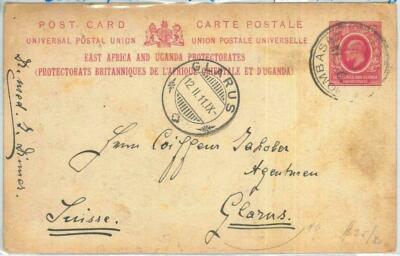 POST CARD CARTE POSTALE
UNIVERSAL POSTAL UNION UNION POSTALE UNIVERSELLE
EAST AFRICA AND UGANDA PROTECTORATES
(PROTECTORATS BRITANNIQUES DE L'AFRIQUE ORIENTALE ET D'UGANDA)
MOMBASA
GLARUS
12.II.11.IX-
Dr. med. J. Dinner
Herrn Coiffeur Jakober
Agenturen
Glarus.
Suisse.